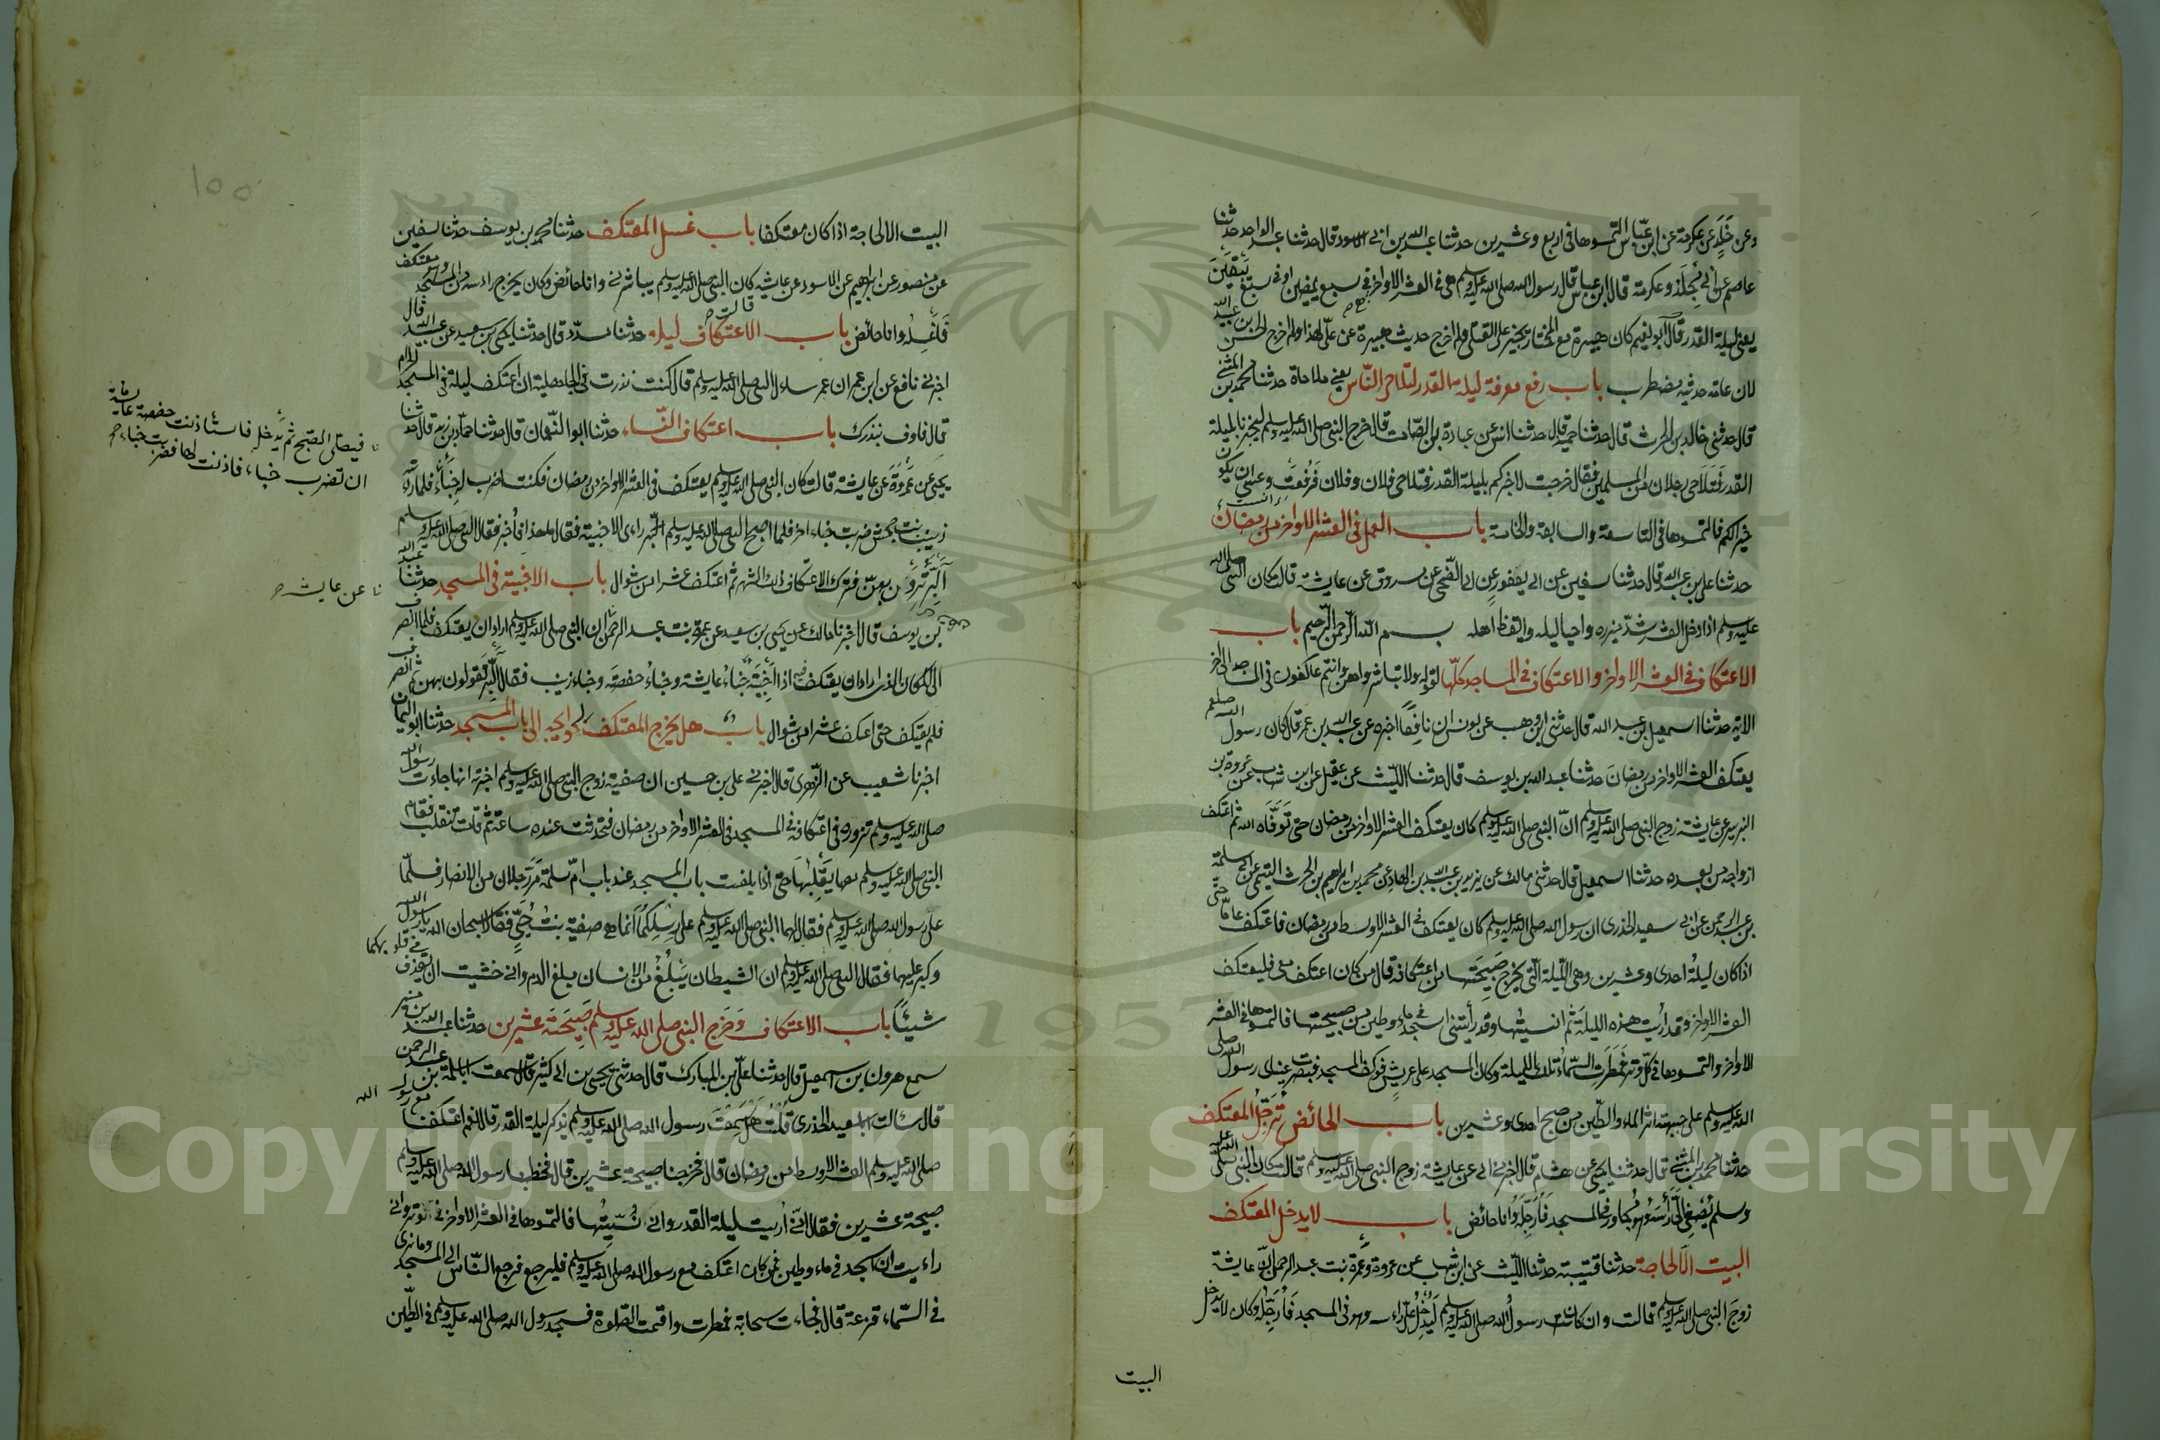 وعن خالد عن عكرمة عن ابن عباس التمسوها في اربع وعشرين حدثنا عبد الله بن ابي الاسود قال حدثنا عبد الواحد حدثنا
عاصم عن ابي مجلز وعكرمة قال ابن عباس قال رسول الله صلى الله عليه وسلم هي في العشر الاواخر في سبع يمضين او في سبع يبقين
يعني ليلة القدر قال ابو نعيم كان هبيرة مع المختار يجيز على القتلى فلم اخرج حديث هبيرة عن علي لهذا ولم اخرج
لان عامة حديثه مضطرب باب رفع معرفة ليلة القدر لتلاحي الناس يعني ملاحاة حدثنا محمد بن المثنى
قال حدثني خالد بن الحرث قال حدثنا حميد قال حدثنا انس عن عبادة بن الصامت قال خرج النبي صلى الله عليه وسلم ليخبرنا بليلة
القدر فتلاحى رجلان من المسلمين فقال خرجت لاخبركم بليلة القدر فتلاحى فلان وفلان فرفعت وعسى ان يكون
خيرا لكم فالتمسوها في التاسعة والسابعة والخامسة باب العمل في العشر الاواخر من رمضان
حدثنا علي بن عبد الله قال حدثنا سفين عن ابي يعفور عن ابي الضحى عن مسروق عن عايشة قالت كان النبي صلى الله
عليه وسلم اذا دخل العشر شد ميزره واحيا ليله وايقظ اهله بسم الله الرحمن الرحيم باب
الاعتكاف في العشر الاواخر والاعتكاف في المساجد كلها لقوله ولا تباشروهن وانتم عاكفون في المساجد الى اخر
الاية حدثنا اسمعيل بن عبد الله قال حدثني ابن وهب عن يونس ان نافعا اخبره عن عبد الله بن عمر قال كان رسول الله صلعم
يعتكف العشر الاواخر من رمضان حدثنا عبد الله بن يوسف قال حدثنا الليث عن عقيل عن ابن شهاب عن عروة بن
الزبير عن عايشة زوج النبي صلى الله عليه وسلم ان النبي صلى الله عليه وسلم كان يعتكف العشر الاواخر من رمضان حتى توفاه الله ثم اعتكف
ازواجه من بعده حدثنا اسمعيل قال حدثني مالك عن يزيد بن عبد الله بن الهاد عن محمد بن ابراهيم بن الحرث التيمي عن ابي سلمة
بن عبد الرحمن عن ابي سعيد الخدري ان رسول الله صلى الله عليه وسلم كان يعتكف في العشر الاوسط من رمضان فاعتكف عاما حتى
اذا كان ليلة احدى وعشرين وهي الليلة التي يخرج صبيحتها من اعتكافه قال من كان اعتكف معي فليعتكف
العشر الاواخر وقد اريت هذه الليلة ثم انسيتها وقد رأيتني اسجد في ماء وطين من صبيحتها فالتمسوها في العشر
الاواخر والتمسوها في كل وتر فمطرت السماء تلك الليلة وكان المسجد على عريش فوكف المسجد فبصرت عيناي رسول الله صلى
الله عليه وسلم على جبهته اثر الماء والطين من صبح احدى وعشرين باب الحائض ترجل المعتكف
حدثنا محمد بن المثنى قال حدثنا يحيى عن هشام قال اخبرني ابي عن عايشة زوج النبي صلى الله عليه وسلم قالت كان النبي صلى الله عليه
وسلم يصغي الي رأسه وهو مجاور في المسجد فارجله وانا حائض باب لا يدخل المعتكف
البيت الا لحاجة حدثنا قتيبة حدثنا الليث عن ابن شهاب عن عروة وعمرة بنت عبد الرحمن ان عايشة
زوج النبي صلى الله عليه وسلم قالت وان كان رسول الله صلى الله عليه وسلم ليدخل علي راسه وهو في المسجد فارجله وكان لا يدخل
البيت
البيت الا لحاجة اذا كان معتكفا باب غسل المعتكف حدثنا محمد بن يوسف حدثنا سفين
عن منصور عن ابراهيم عن الاسود عن عايشة كان النبي صلى الله عليه وسلم يباشرني وانا حائض وكان يخرج راسه من المسجد وهو معتكف
فاغسله وانا حائض باب الاعتكاف ليلا حدثنا مسدد قال حدثنا يحيى بن سعيد عن عبيد الله قال
اخبرني نافع عن ابن عمر ان عمر سأل النبي صلى الله عليه وسلم قال كنت نذرت في الجاهلية ان اعتكف ليلة في المسجد الحرام
قال فاوف بنذرك باب اعتكاف النساء حدثنا ابو النعمان قال حدثنا حماد بن زيد قال حدثنا
يحيى عن عمرة عن عايشة قالت كان النبي صلى الله عليه وسلم يعتكف في العشر الاواخر من رمضان فكنت اضرب له خباء فلما راته
زينب بنت جحش ضربت خباء اخر فلما اصبح النبي صلى الله عليه وسلم راى الاخبية فقال ما هذا فاخبر فقال النبي صلى الله عليه وسلم
آلبر ترون بهن فترك الاعتكاف ذلك الشهر ثم اعتكف عشرا من شوال باب الاخبية في المسجد حدثنا عبد الله
بن يوسف قال اخبرنا مالك عن يحيى بن سعيد عن عمرة بنت عبد الرحمن ان النبي صلى الله عليه وسلم اراد ان يعتكف فلما انصرف
الى المكان الذي اراد ان يعتكف اذا اخبية خباء عايشة وخباء حفصة وخباء زينب فقال آلبر تقولون بهن ثم انصرف
فلم يعتكف حتى اعتكف عشرا من شوال باب هل يخرج المعتكف لحوايجه الى باب المسجد حدثنا ابو اليمان
اخبرنا شعيب عن الزهري قال اخبرني علي بن حسين ان صفية زوج النبي صلى الله عليه وسلم اخبرته انها جاءت رسول الله
صلى الله عليه وسلم تزوره في اعتكافه في المسجد في العشر الاواخر من رمضان فتحدثت عنده ساعة ثم قامت تنقلب فقام
النبي صلى الله عليه وسلم معها يقلبها حتى اذا بلغت باب المسجد عند باب ام سلمة مر رجلان من الانصار فسلما
على رسول الله صلى الله عليه وسلم فقال لهما النبي صلى الله عليه وسلم على رسلكما انما هي صفية بنت حيي فقالا سبحان الله يا رسول الله
وكبر عليهما فقال النبي صلى الله عليه وسلم ان الشيطان يبلغ من الانسان مبلغ الدم واني خشيت ان يقذف في قلوبكما
شيئا باب الاعتكاف وخرج النبي صلى الله عليه وسلم صبيحة عشرين حدثنا عبد الله بن منير
سمع هرون بن اسمعيل قال حدثنا علي بن المبارك قال حدثني يحيى بن ابي كثير قال سمعت ابا سلمة بن عبد الرحمن
قال سالت ابا سعيد الخدري قلت هل سمعت رسول الله صلى الله عليه وسلم يذكر ليلة القدر قال نعم اعتكفنا مع رسول الله
صلى الله عليه وسلم العشر الاوسط من رمضان قال فخرجنا صبيحة عشرين قال فخطبنا رسول الله صلى الله عليه وسلم
صبيحة عشرين فقال اني اريت ليلة القدر واني نسيتها فالتمسوها في العشر الاواخر في وتر واني
رايت ان اسجد في ماء وطين فمن كان اعتكف مع رسول الله صلى الله عليه وسلم فليرجع فرجع الناس الى المسجد وما نرى
في السماء قزعة قال فجاءت سحابة فمطرت واقيمت الصلوة فسجد رسول الله صلى الله عليه وسلم في الطين
فيصلي الصبح ثم يدخله فاستاذنت حفصة عايشة
ان تضرب خباء فاذنت لها فضربت خباء
عن عايشة
100
1957
Copyright © King Saud University